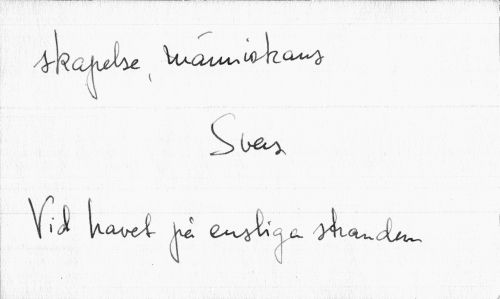 skapelse, människans
Svens
Vid havet på ensliga stranden